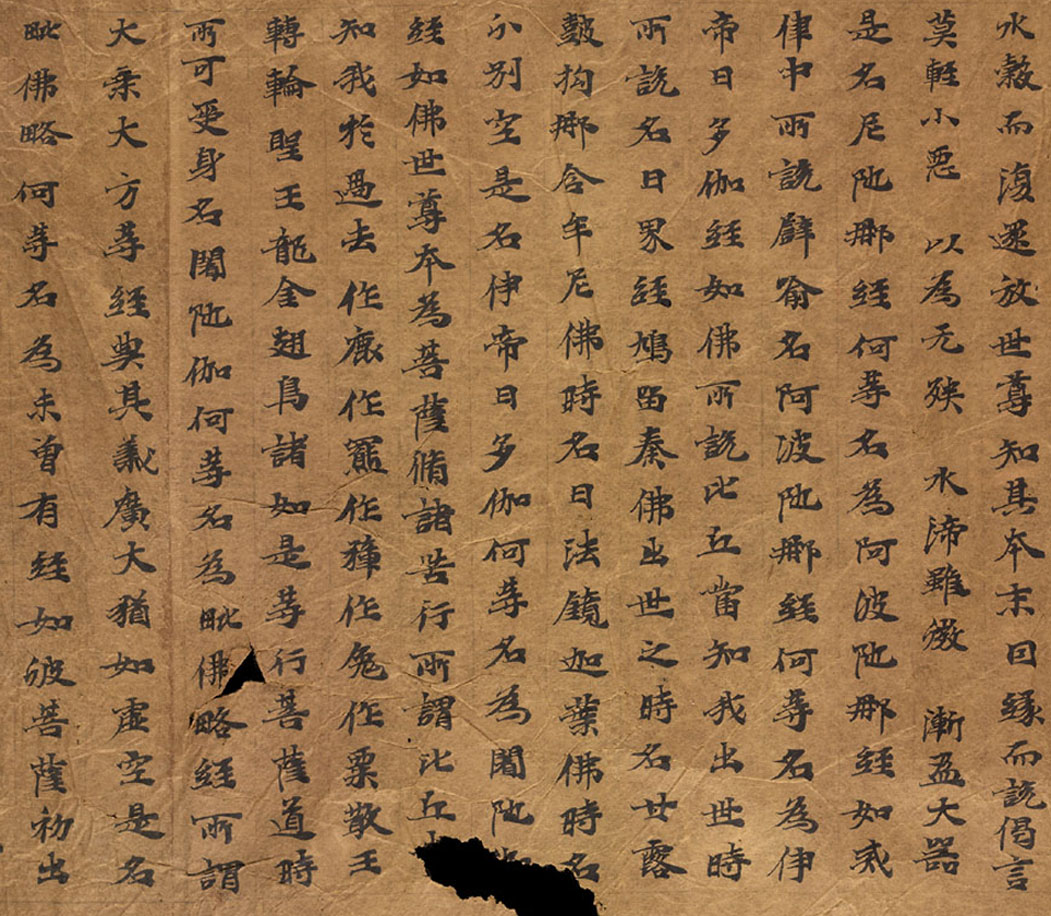 水穀而復還放世尊知其本末因緣而說偈言
莫輕小惡　以為无殃　水渧雖微　漸盈大器
是名尼陁那經何等名為阿波陁那經如戒
律中所說譬喻名阿波陁那經何等名為伊
帝曰多伽經如佛所說比丘當知我出世時
所說名曰界經鳩留秦佛出世之時名甘露
皷拘那含牟尼佛時名曰法鏡迦葉佛時名
分別空是名伊帝曰多伽何等名為闍陁
經如佛世尊本為菩薩脩諸苦行所謂比丘
知我於過去作鹿作羆作獐作兔作粟散王
轉輪聖王龍金翅鳥諸如是等行菩薩道時
所可受身名闍陁伽何等名為毗佛略經所謂
大乘大方等經典其義廣大猶如虛空是名
毗佛略何等名為未曾有經如彼菩薩初出